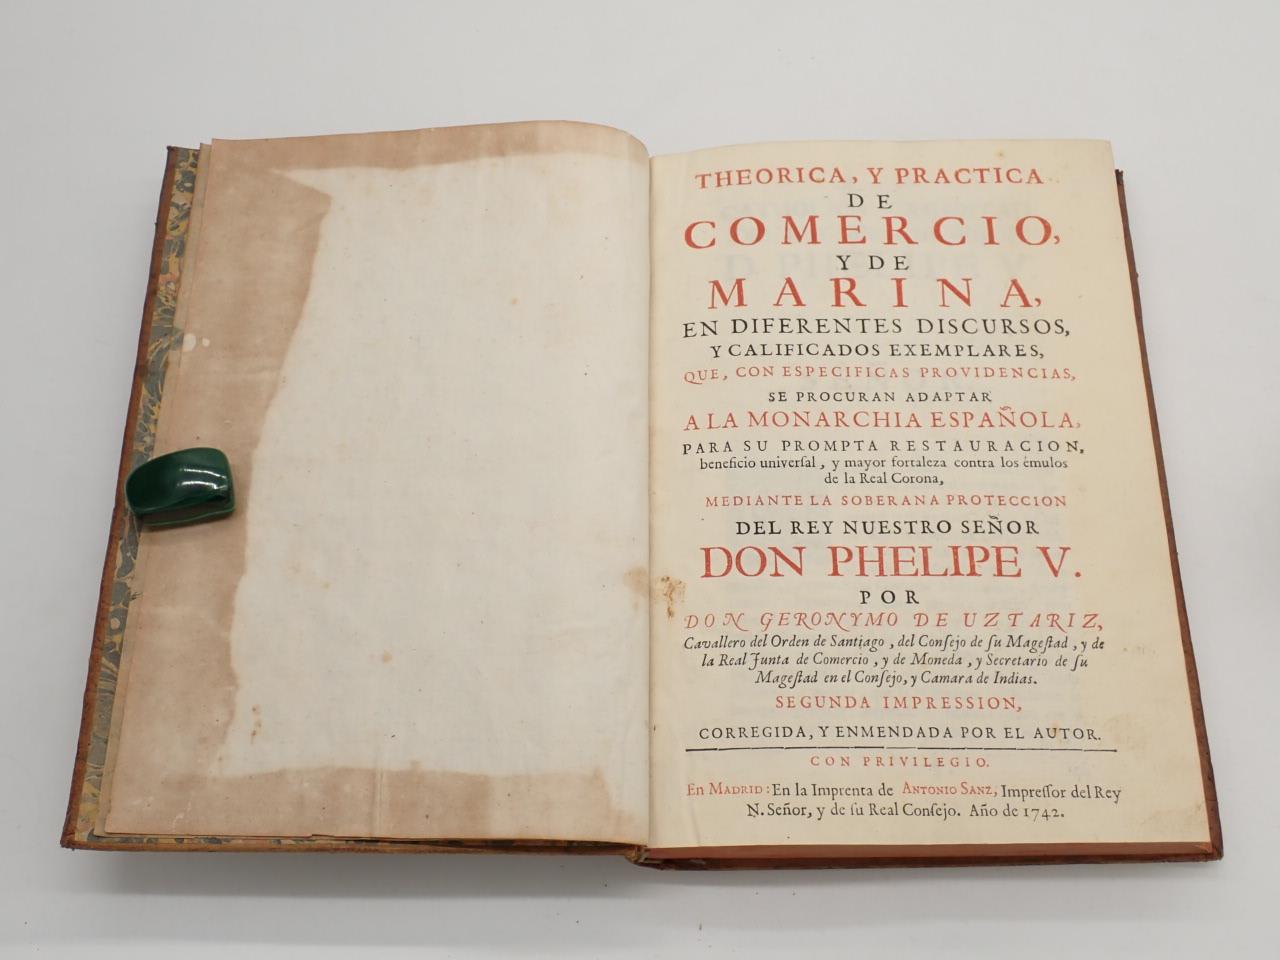 THEORICA, Y PRACTICA
DE
COMERCIO,
Y DE
MARINA,
EN DIFERENTES DISCURSOS,
Y CALIFICADOS EXEMPLARES,
QUE, CON ESPECIFICAS PROVIDENCIAS,
SE PROCURAN ADAPTAR
A LA MONARCHIA ESPAÑOLA,
PARA SU PROMPTA RESTAURACION,
beneficio univerſal, y mayor fortaleza contra los émulos
de la Real Corona,
MEDIANTE LA SOBERANA PROTECCION
DEL REY NUESTRO SEÑOR
DON PHELIPE V.
POR
DON GERONYMO DE UZTARIZ,
Cavallero del Orden de Santiago, del Conſejo de ſu Mageſtad, y de
la Real Junta de Comercio, y de Moneda, y Secretario de ſu
Mageſtad en el Conſejo, y Camara de Indias.
SEGUNDA IMPRESSION,
CORREGIDA, Y ENMENDADA POR EL AUTOR.
CON PRIVILEGIO.
En MADRID: En la Imprenta de ANTONIO SANZ, Impreſſor del Rey
N. Señor, y de ſu Real Conſejo. Año de 1742.